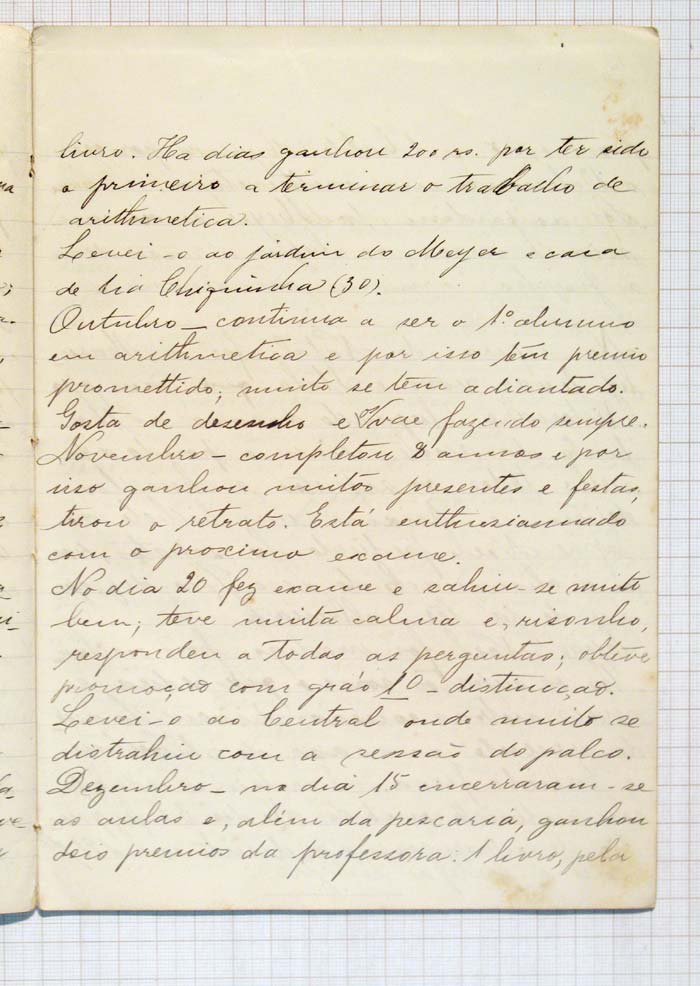 livro. Ha dias ganhou 200 rs. por ter sido
o primeiro a terminar o trabalho de
arithmetica.
Levei-o ao jardim do Meyer e casa
de tia Chiquinha (30).
Outubro - continua a ser o 1º alumno
em arithmetica e por isso têm premio
promettido; muito se tem adiantado.
Gosta de desenho e vae fazendo sempre.
Novembro - completou 8 annos e por
isso ganhou muitos presentes e festas,
tirou o retrato. Está enthusiasmado
com o proximo exame.
No dia 20 fez exame e sahiu-se muito
bem; teve muita calma e, risonho,
respondeu a todas as perguntas; obteve
promoção com gráo 10 - distincção.
Levei-o ao Central onde muito se
distrahiu com a sessão do palco.
Dezembro - no dia 15 encerraram-se
as aulas e, além da pescaria, ganhou
dois premios da professora: 1 livro, pela